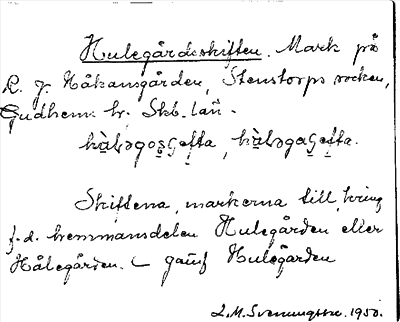 Hulegårdsskiften. Mark på
l. 7. Håkansgården, Stenstorps socken,
Gudhems hr. Skb. län.
Skiftena, markerna till, kring
f.d. hemmansdelen Hulegården eller
Hålegården. ganf Hulegården
L.M. Svenungsson. 1950.